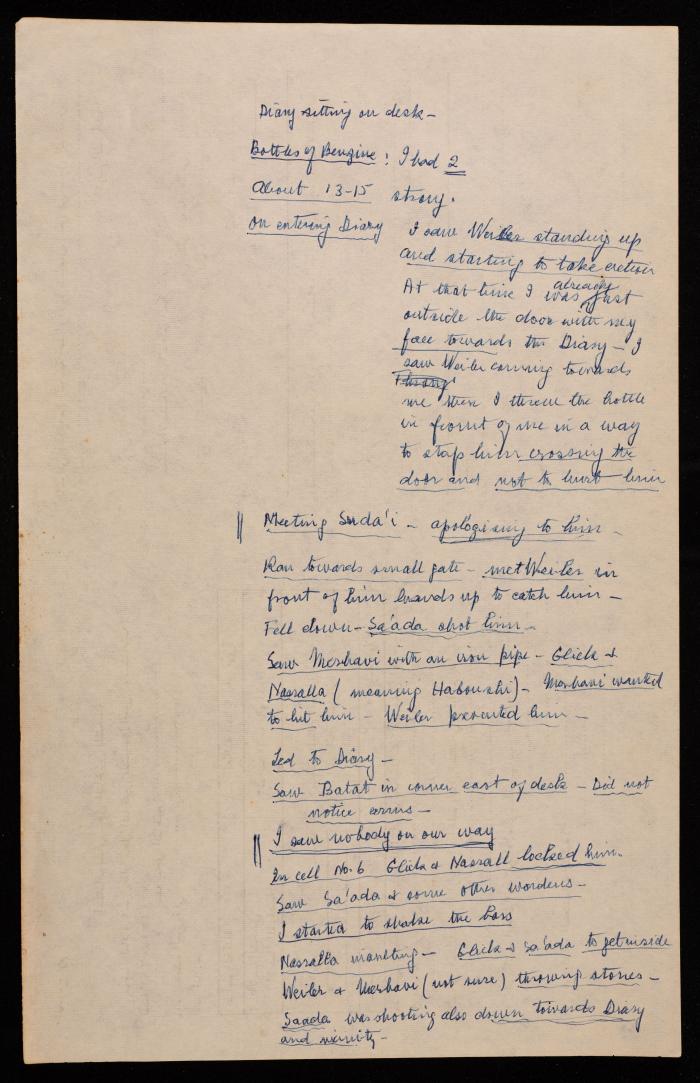 Diary sitting on desk -
Bottles of Benzine : I had 2
About 13-15 strong.
On entering Diary I saw Weiler standing up
and starting to take action
At that time I was already just
outside the door with my
face towards the Diary - I
saw Weiler coming towards
me then I threw the bottle
in front of me in a way
to stop him crossing the
door and not to hurt him
Meeting Suda'i - apologising to him -
Ran towards small gate - met Weiler in
front of him hands up to catch him -
Fell down - Sa'ada shot him -
Saw Meshavi with an iron pipe - Glick &
Nassalla (meaning Haboushi) - Meshavi wanted
to hit him - Weiler prevented him -
Led to Diary -
Saw Batat in corner east of desk - Did not
notice arms -
I saw nobody on our way
In cell No. 6 Glick & Nassall locked him.
Saw Sa'ada & some other wardens -
I started to shake the bars
Nassalla insulting - Glick & Sa'ada to get inside
Weiler & Meshavi (not sure) throwing stones -
Saada was shooting also down towards Diary
and vicinity -